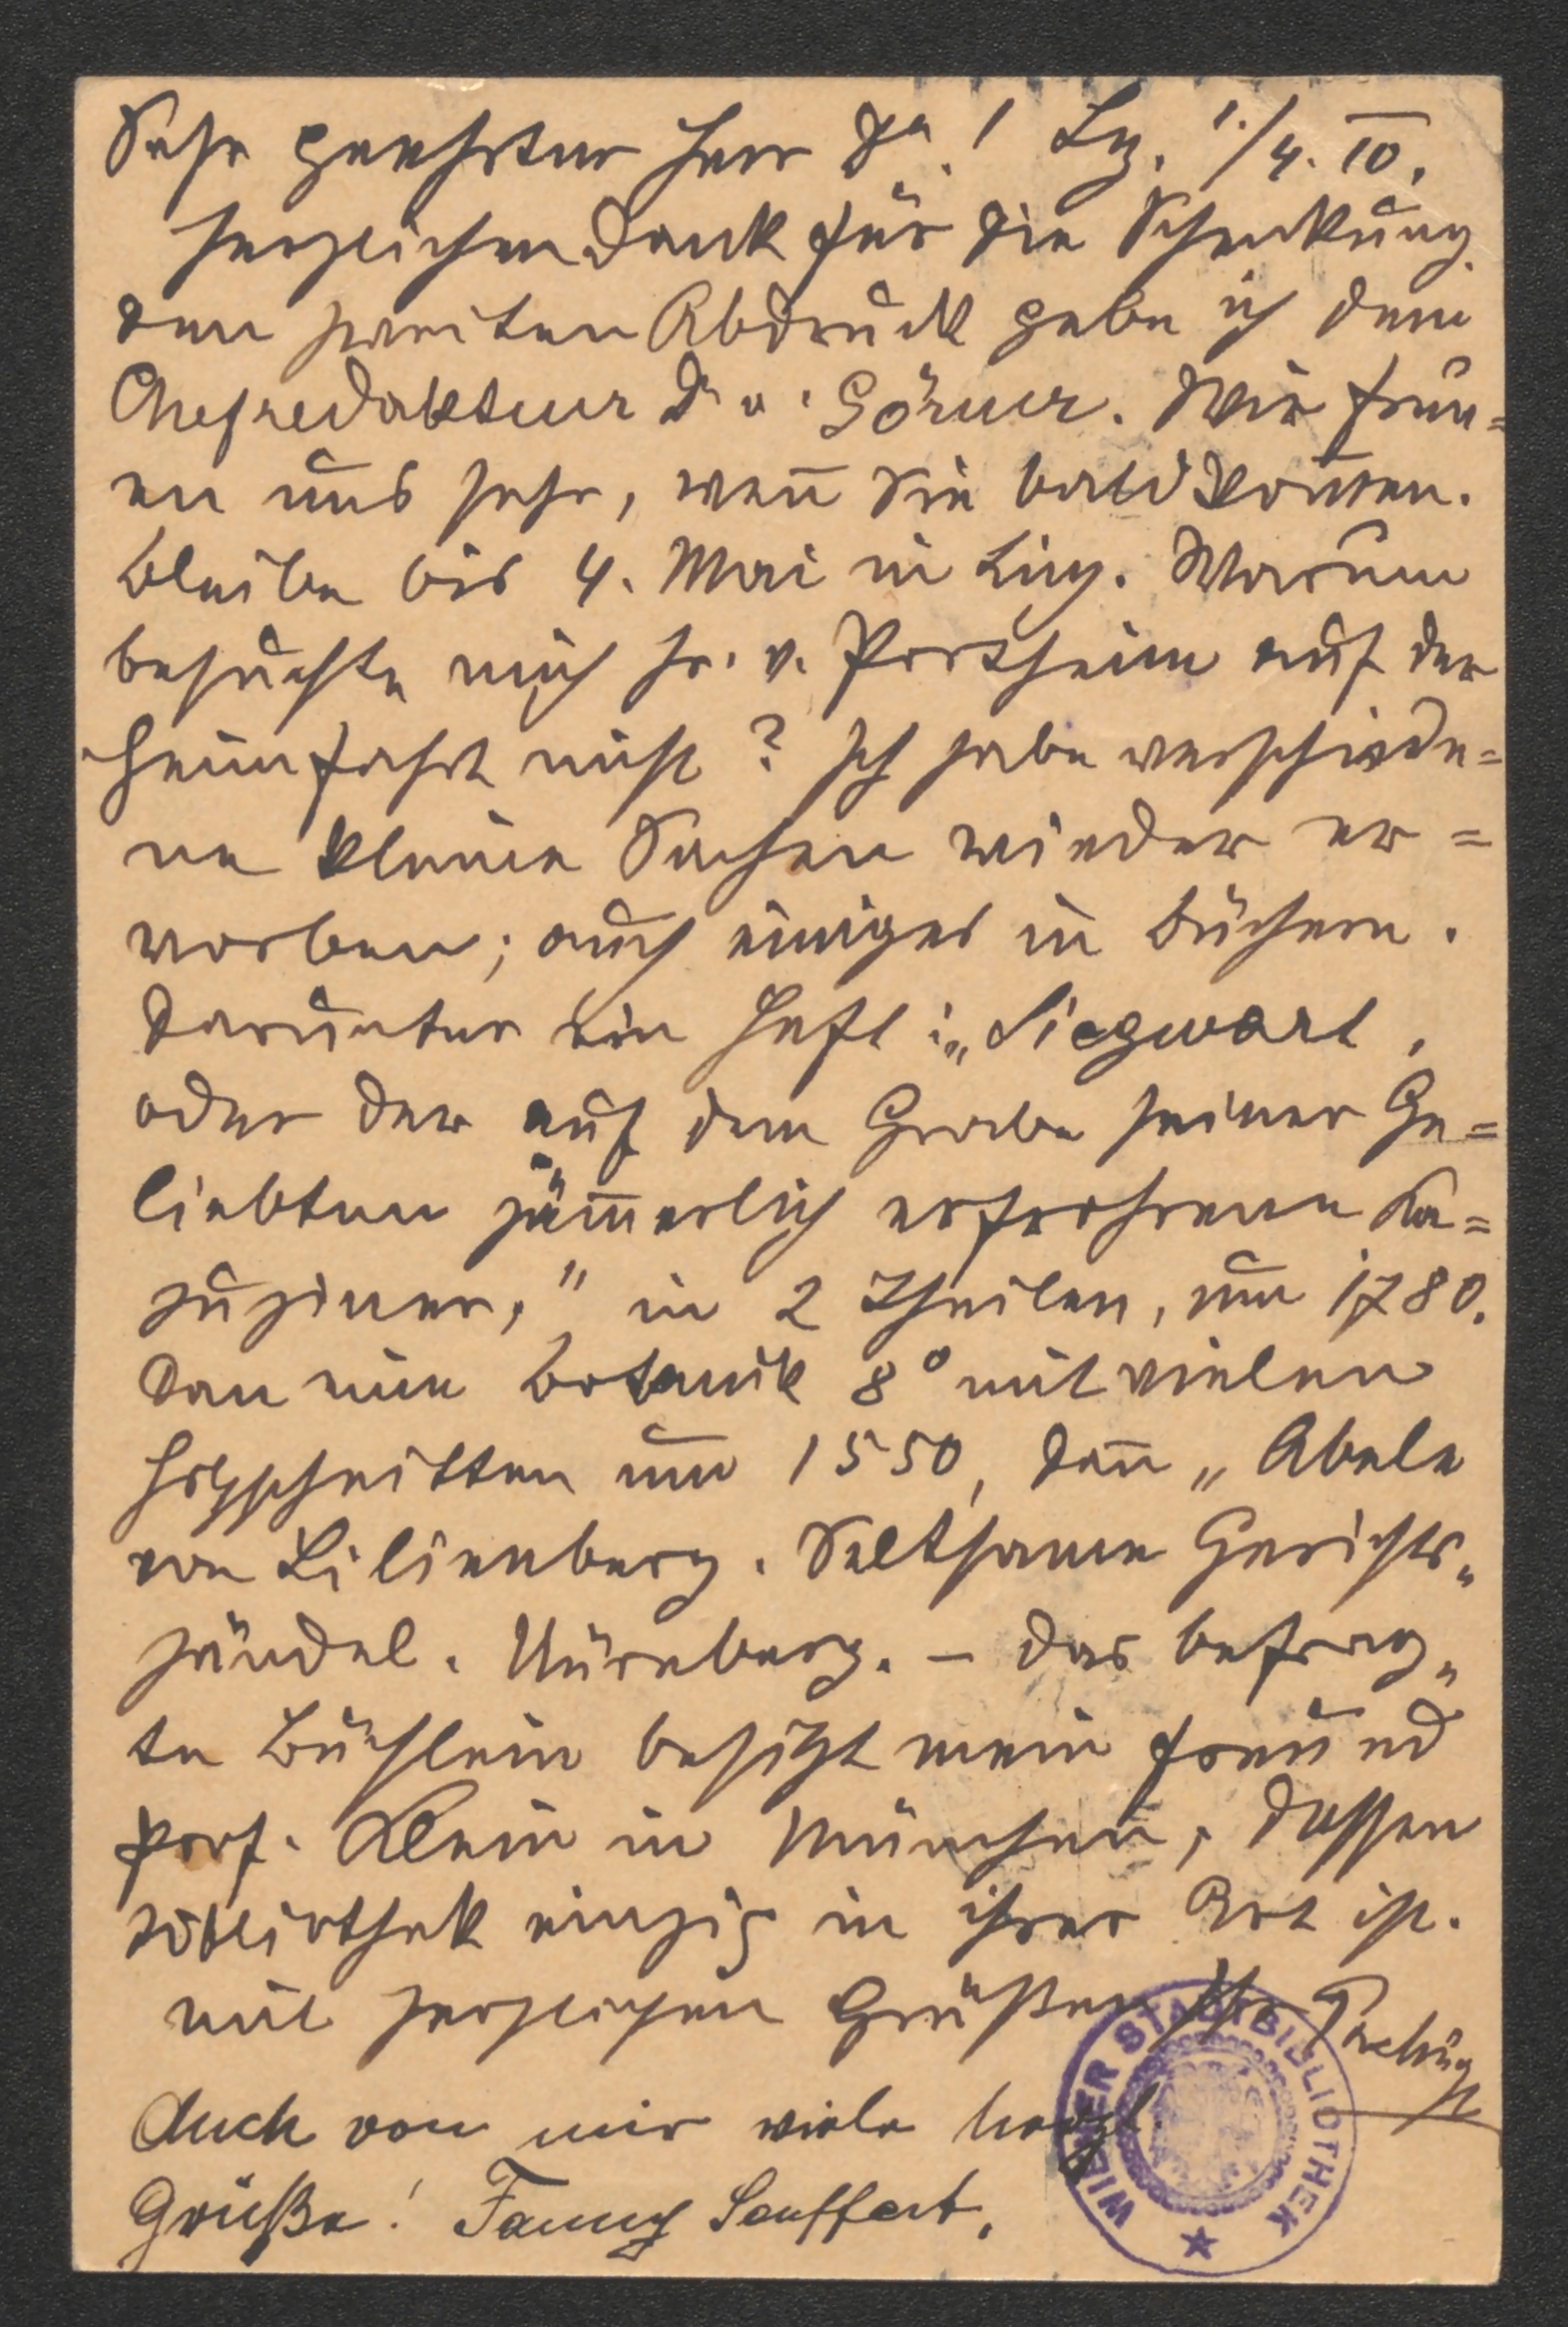 Sehr geehrter Herr Dr.! Lz. 1./4. 10.
Herzlichen Dank für die Schenkung.
den zweiten Abdruck gebe ich dem
Chefredakteur Dr. v. Görner. Wir freu=
en uns sehr, wen̄ Sie bald kom̄en.
Bleibe bis 4. Mai in Linz. Warum
besuchte mich Hr. v. Portheim auf der
Heimfahrt nicht? Ich habe verschiede=
ne kleine Sachen wieder er=
worben; auch einiges in Büchern.
Darunter ein Heft: „Siegwart,
oder der auf dem Grabe seiner Ge=
liebten jäm̄erlich erfrohrene Ka=
puziner," in 2 Theilen, um 1780.
Dan eine Botanik 8° mit vielen
Holzschnitten um 1550, dan̄ „Abele
von Lilienberg. Seltsame Gerichts„
händel. Nürnberg. – Das befrag„
te Büchlein besitzt mein Freund
Prof. Klein in München, dessen
Bibliothek einzig in ihrer Art ist.
Mit herzlichen Grüßen Ihr
Auch von mir viele herzl.
Grüße! Fanny Seuffert.
WIENER STADTBIBLIOTHEK